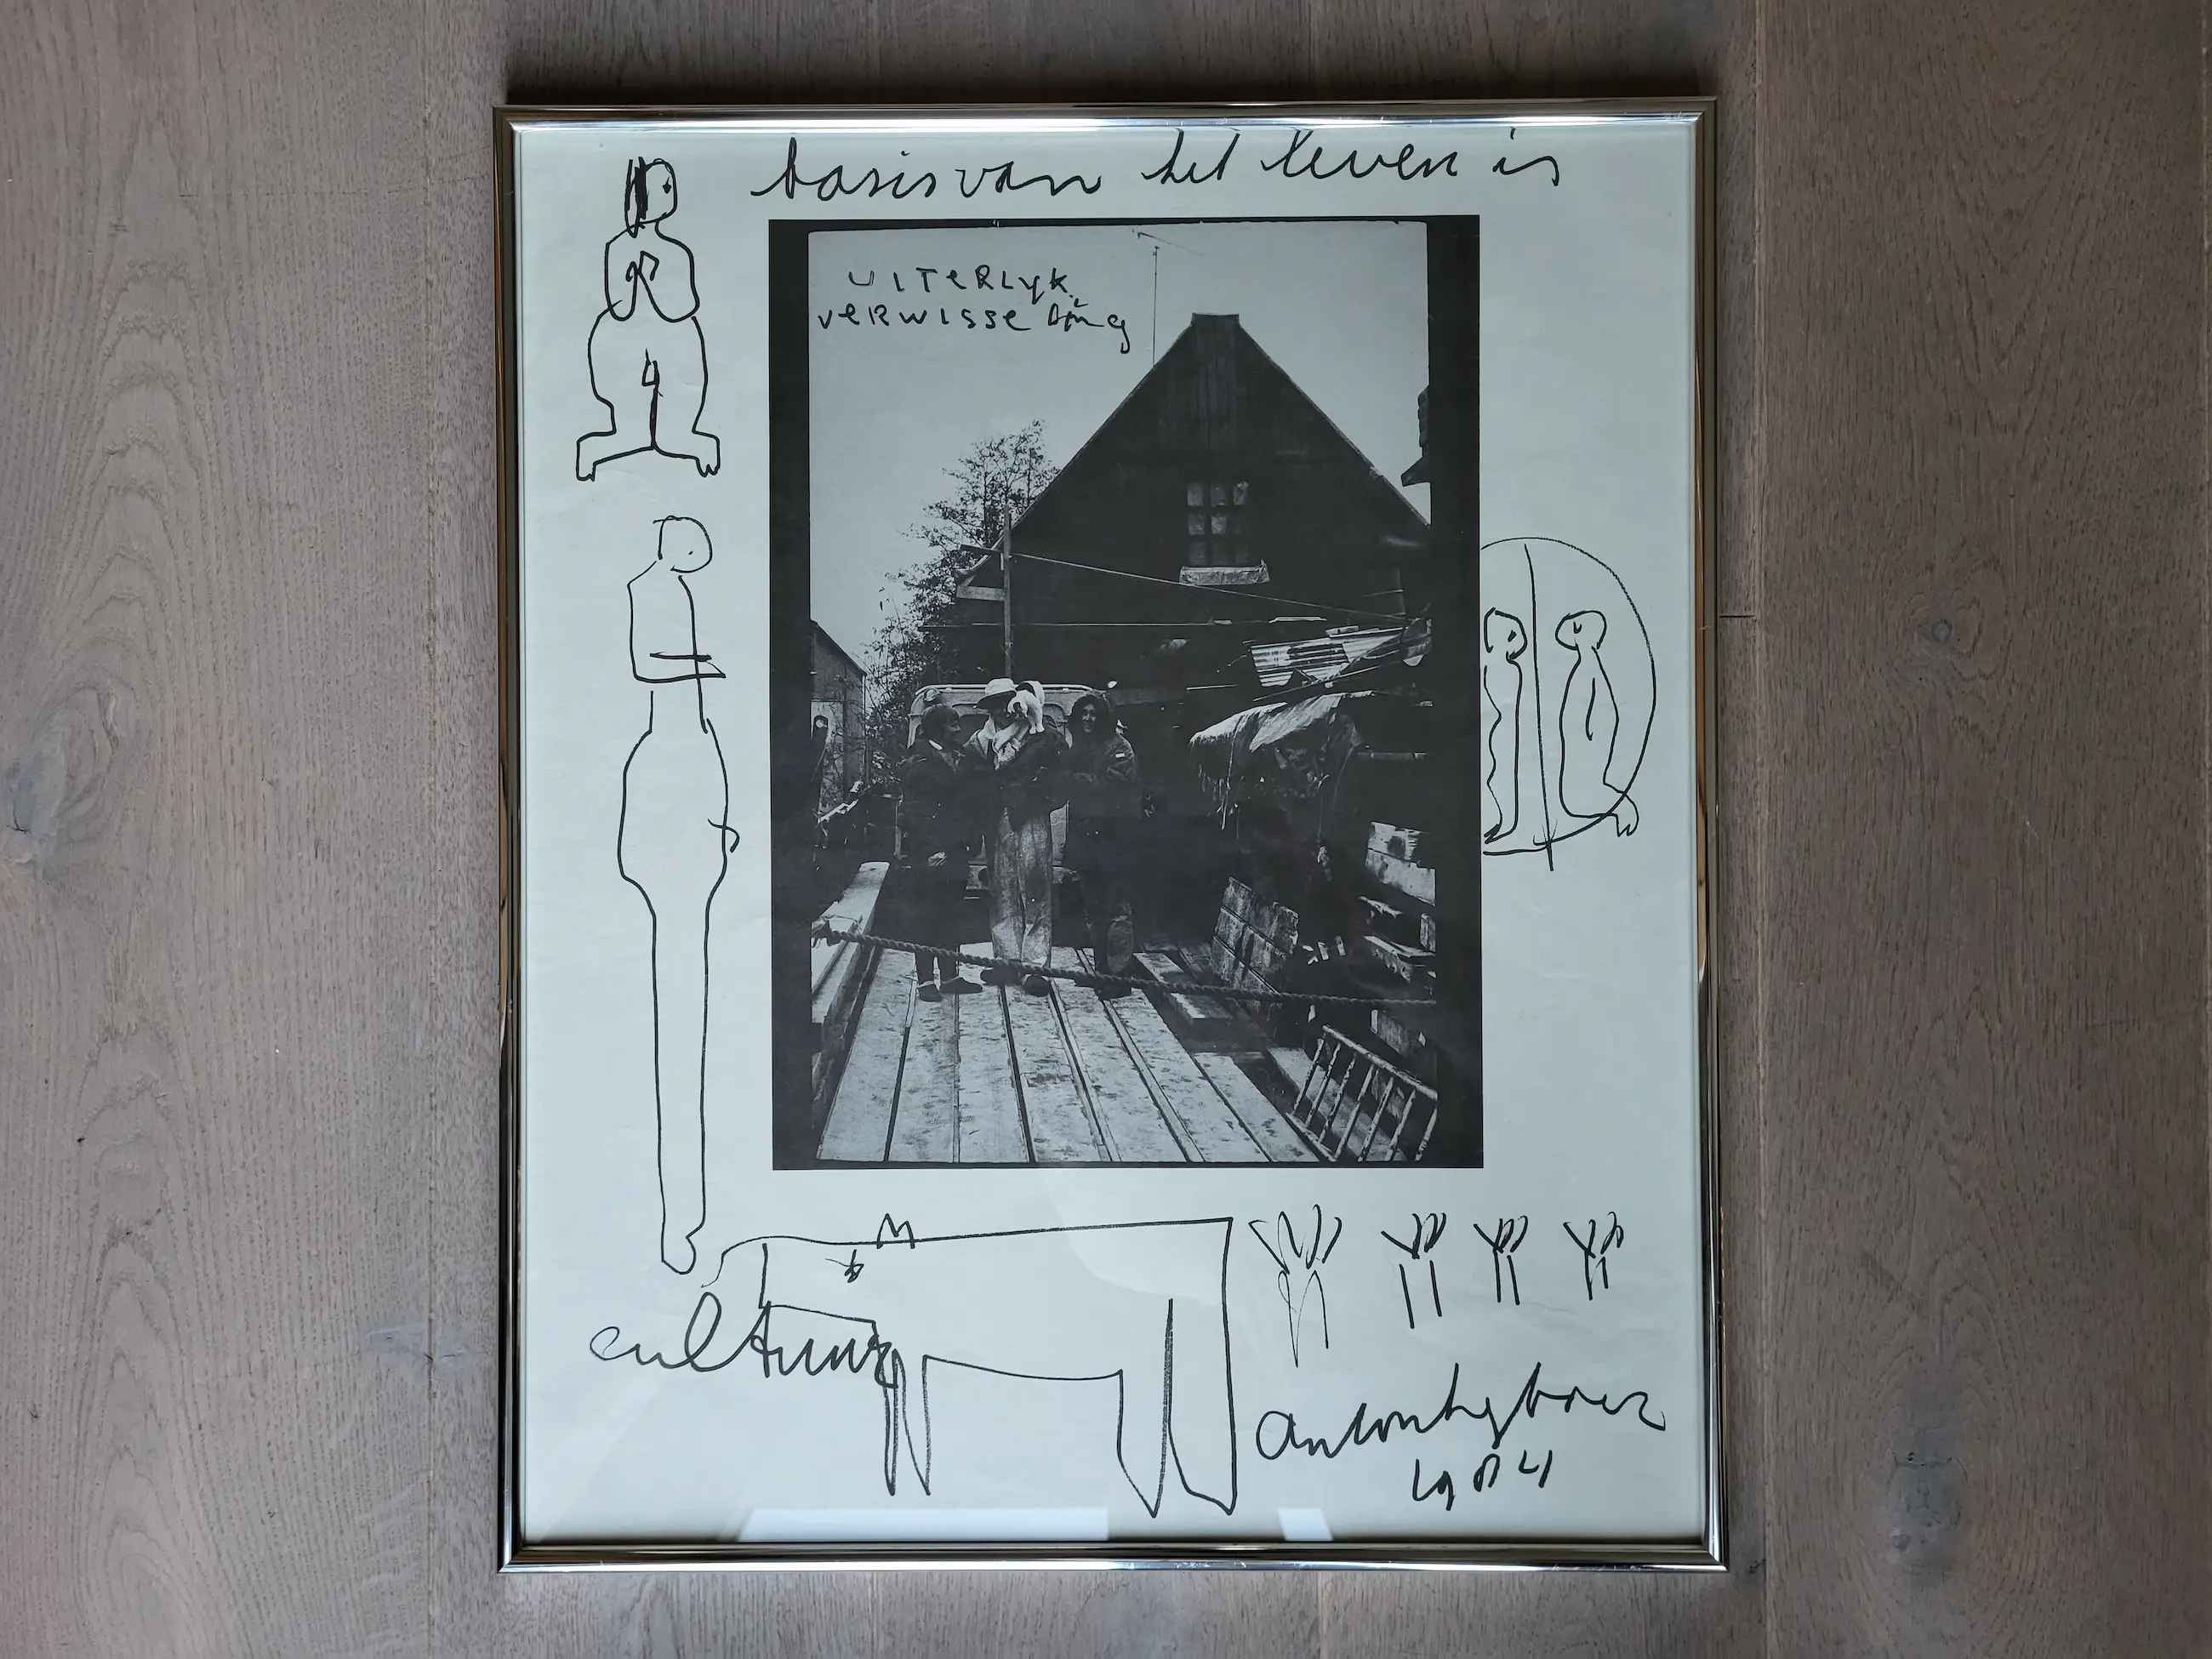 basis van het leven is
UITERLYK
VERWISSELING
cultuur
anton heyboer
1984